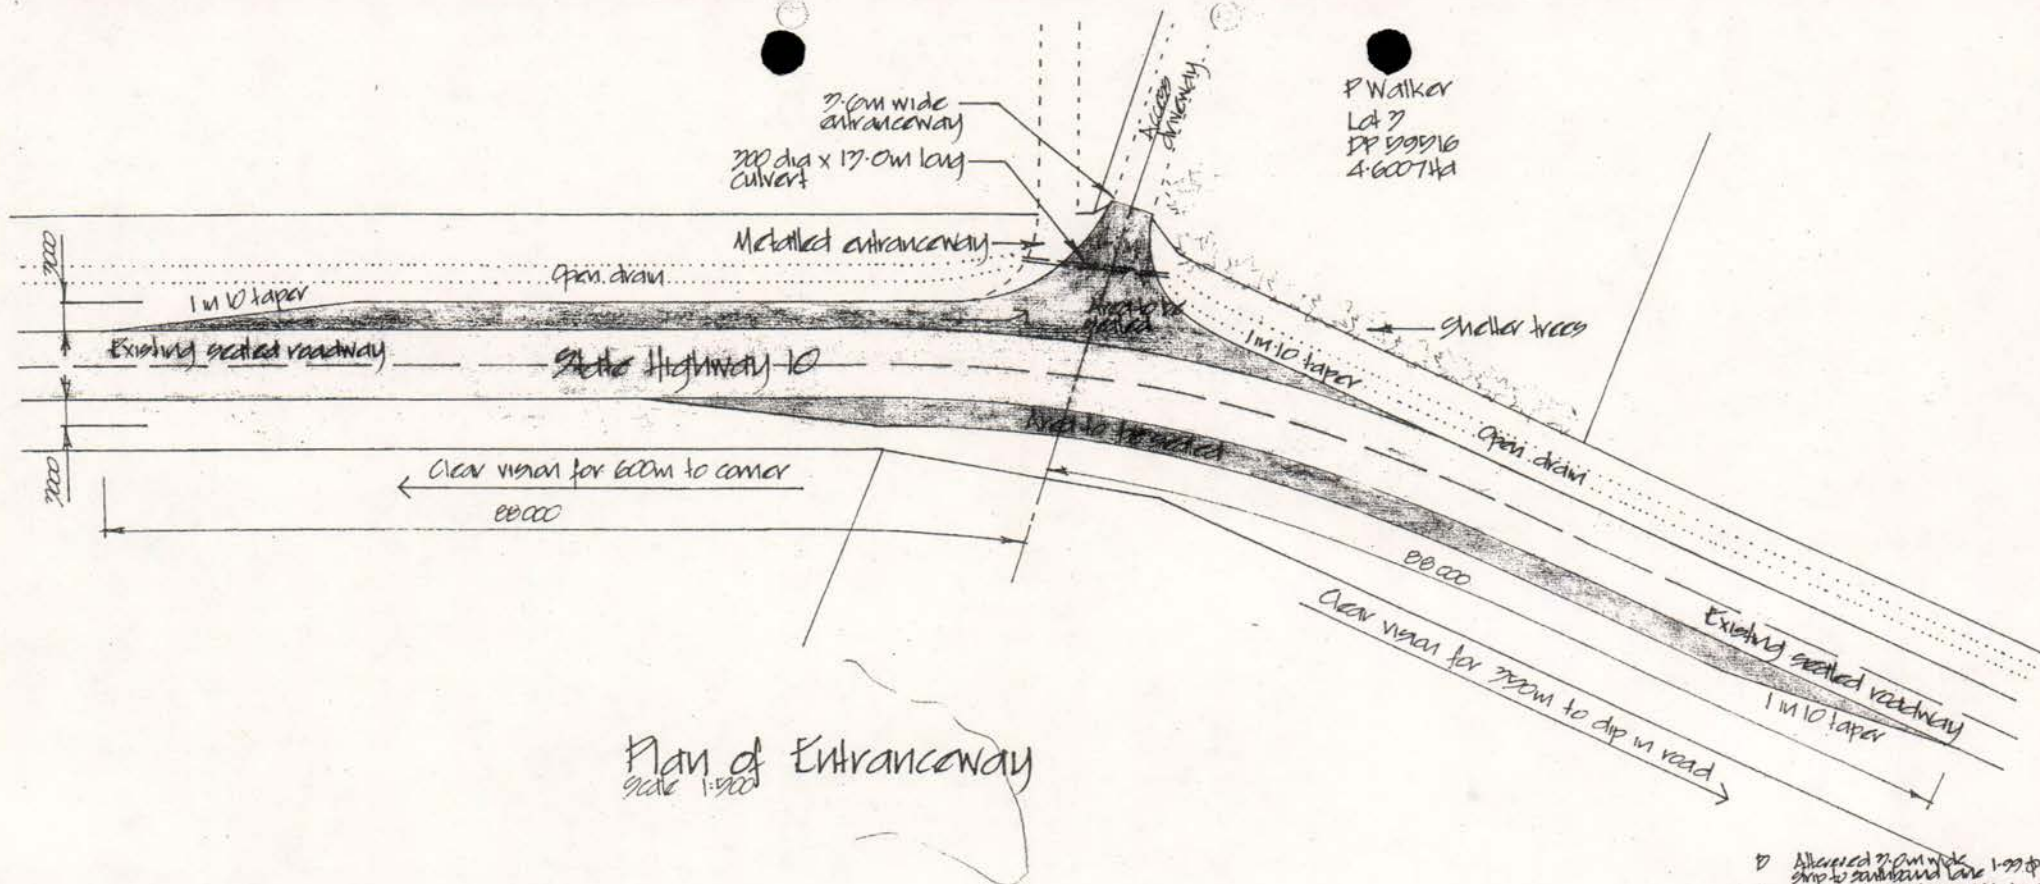 3.6m wide
entranceway
300 dia x 13.0m long
culvert
Access
driveway
P Walker
Lot 3
DP 59516
4.6007Ha
Metalled entranceway
Open drain
3000
1 in 10 taper
Area to be
sealed
Shelter trees
1 in 10 taper
Existing sealed roadway
State Highway 10
Area to be sealed
Open drain
3000
Clear vision for 600m to corner
88000
88000
Clear vision for 350m to dip in road
Existing sealed roadway
1 in 10 taper
Plan of Entranceway
Scale 1:500
Altered 3.0m wide
strip to southbound lane